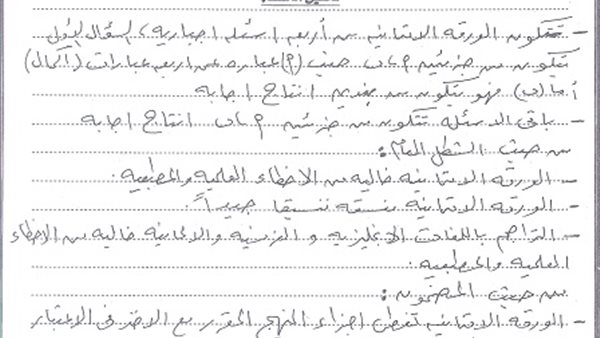 - تتكون الورقة الامتحانية من أربعه اسئله اجباريه، السؤال الأول
يتكون من جزئيه م،ب حيث (م) عباره عن اربعه عبارات (اكمال)
أما (ب) فهو يتكون من بندين انتاج اجابه
- باقى الاسئله تتكون من جزئيه م،ب انتاج اجابه
من حيث الشكل العام:
- الورقه الامتحانيه خاليه من الاخطاء العلميه والمطبعيه.
- الورقه الامتحانيه منسقه تنسيقا جيداً.
- التراجم باللغات الانجليزيه و الفرنسيه والالمانيه خاليه من الاخطاء
العلميه والمطبعيه.
من حيث المضمون:
- الورقه الامتحانيه تغطى اجزاء المنهج المقرر مع الاخذ فى الاعتبار